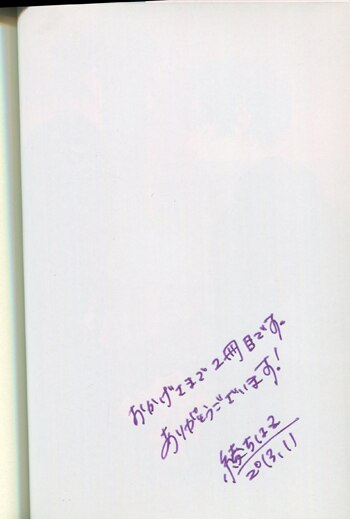 おかげさまで2冊目です。
ありがとうございます!
2013.11